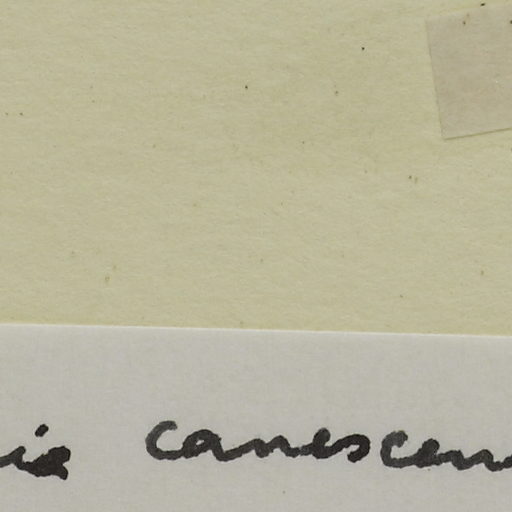 ia canescen